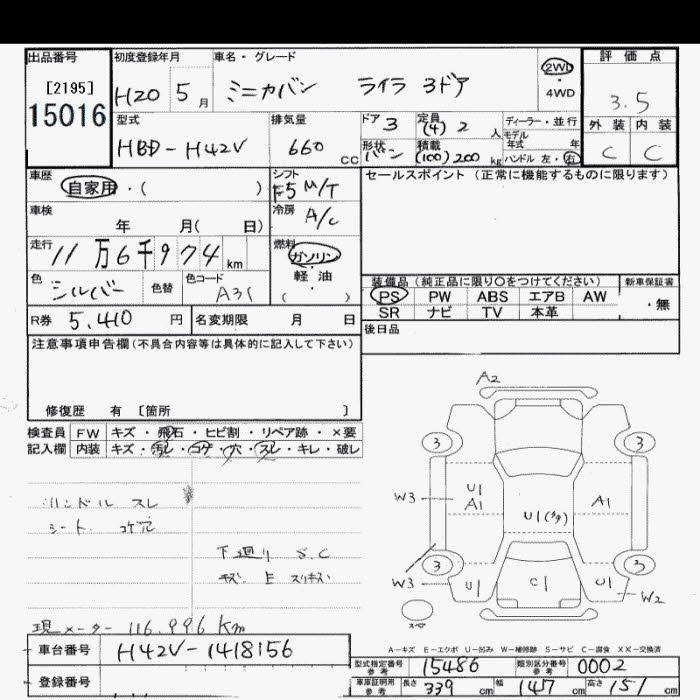 出品番号 初度登録年月 車名・グレード 評価点
[2195] H20 5月 ミニカバン ライラ 3ドア 2WD・4WD 3.5
15016
型式 排気量 ドア 3 定員 (4) 2 人 ディーラー・並行 外装 内装
モデル年式 年
HBD-H42V 660 cc 形状 バン 積載 (100) 200 kg ハンドル 左・右 C C
車歴 自家用・( ) シフト F5 M/T セールスポイント (正常に機能するものに限ります)
車検 年 月( 日) 冷房 A/C
走行 11万6千974km 燃料 ガソリン
軽・油
( )
色 シルバー 色替 色コード A31
装備品 (純正品に限り〇をつけてください) 新車保証書
PS PW ABS エアB AW ・無
SR ナビ TV 本革
R券 5,410 円 名変期限 月 日 後日品
注意事項申告欄(不具合内容等は具体的に記入して下さい)
修復歴 有 〔箇所 〕
検査員記入欄 FW キズ・飛石・ヒビ割・リペア跡・×要
内装 キズ・汚レ・コゲ・穴・スレ・キレ・破レ
ハンドル スレ
シート コゲ穴
下廻り S.C
現メーター 116,996 Km
A2
3 3
W3 U1 A1 A1
U1(多)
3 3
W3 U1 C1 U1 W2
スペア
A-キズ E-エクボ U-凹み W-補修跡 S-サビ C-腐食 XX-交換済
車台番号 H42V-1418156
登録番号
型式指定番号 参考 15486 類別区分番号 参考 0002
車庫証明用 参考 長さ 339 cm 幅 147 cm 高さ 151 cm